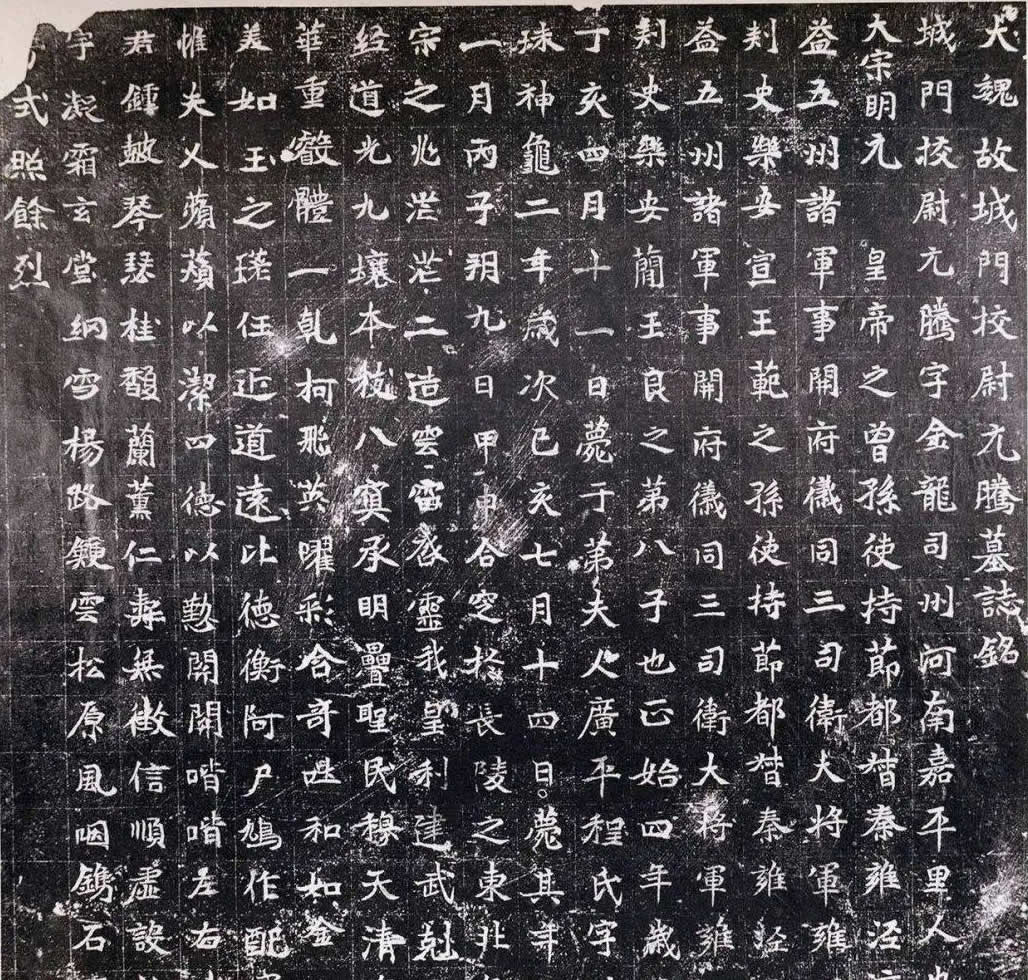 大魏故城門校尉元騰墓誌銘
城門校尉元騰字金龍司州河南嘉平里人
大宗明元皇帝之曾孫使持節都督秦雍涇
益五州諸軍事開府儀同三司衛大將軍雍
刺史樂安宣王範之孫使持節都督秦雍涇
益五州諸軍事開府儀同三司衛大將軍雍
刺史樂安簡王良之第八子也正始四年歲
丁亥四月十一日薨于第夫人廣平程氏字
珠神龜二年歲次己亥七月十四日薨其年
一月丙子朔九日甲申合窆於長陵之東北
宗之兆茫茫二造雲雷啟靈我皇利建武剋
经道光九壤本枝八寘承明疊聖民穆天清
華重叡體一乹柯飛英曜彩含奇迆和如金
美如玉之瑛任近道遠比德衡阿尸鳩作配
惟夫人蘋蘩以潔四德以懃關關喈喈左右
君鍾皷琴瑟桂馥蘭薰仁壽無徵信順虛設
宇凝霜玄堂網雪楊路鍾雲松原風咽鐫石
式照餘烈